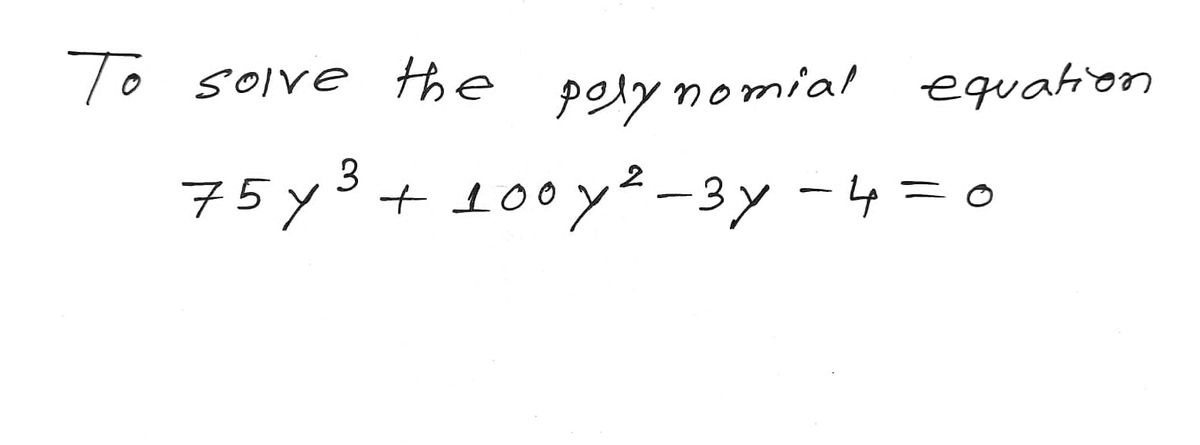 To solve the polynomial equation
75y³ + 100y² - 3y - 4 = 0